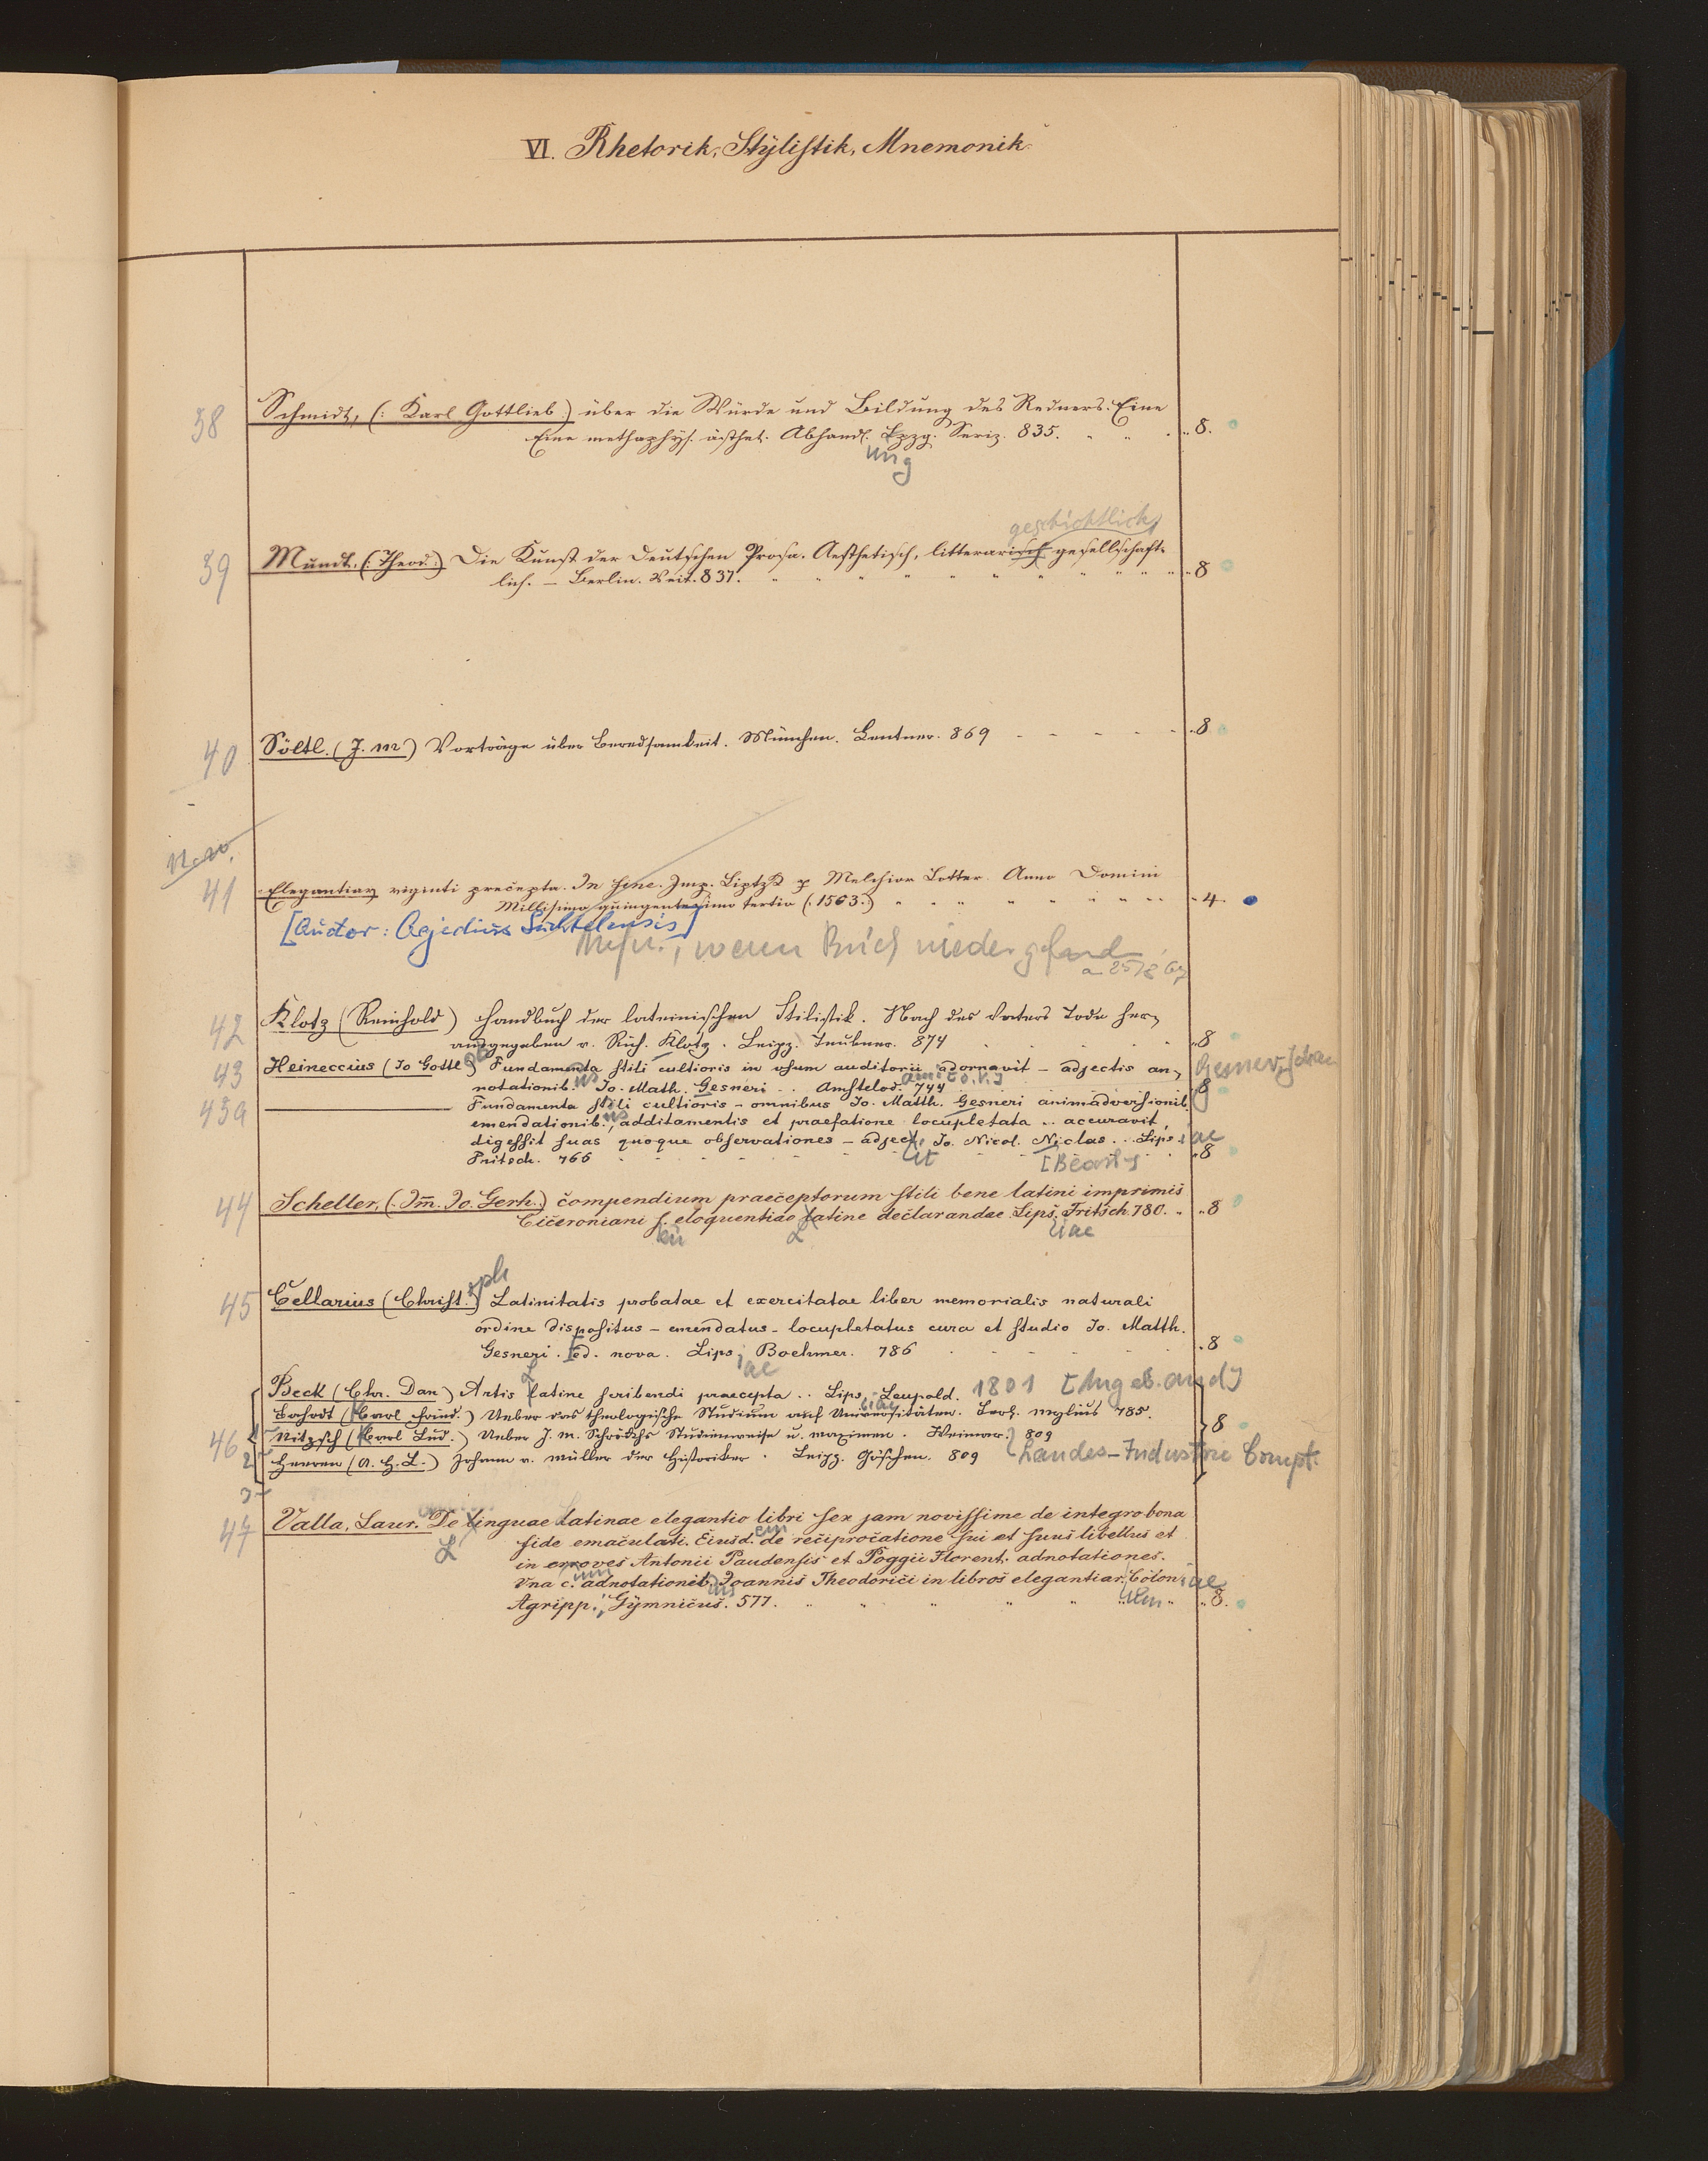 VI. Rhetorik, Stÿlistik, Mnemonik.
38 Schmidt, (: Karl Gottlieb :) über die Würde und Bildung des Redners. Eine
Eine methaphys. ästhet. Abhandl. Lpzg. Serig. 835. 8.
ung
geschichtlich,
39 Mundt. (: Theod :) Die Kunst der Deutschen Prosa. Aesthetisch, litterarisch gesellschaft-
lich. – Berlin. Veit. 837. 8
40 Söltl. (J. M.) Vorträge über Beredsamkeit. München. Lentner. 869 8
41 Elegantiar viginti precepta. In fine. Imp. Liptzk p Melchior Lotter. Anno Domini
Millisimo quingentesimo tertio (: 1563 :) 4.
[Auctor: Aegidius Suchtelensis]
wenn Buch wieder
42 Klotz (Reinhold) Handbuch der lateinischen Stilistik. Nach des Vaters Tode her-
ausgegeben v. Rich. Klotz. Leipz. Teubner. 874 8
43 Heineccius (Jo Gottl) Fundamenta stili cultioris in usum auditorii adornavit – adjectis an-
notationib. us Jo. Math. Gesneri .. Amstelod. ami [o. V.] 744 8
43a Fundamenta stili cultioris – omnibus Jo. Matth. Gesneri animadversionib.
emendationib. us, additamentis et praefatione locupletata .. accuravit,
digessit suas quoque observationes – adjec Jo. Nicol. Niclas .. Lips iae
Fritsch. 766 it [Bearb.] 8
44 Scheller, (: Im̄. Jo. Gerh. :) compendium praeceptorum stili bene latini imprimis
Ciceroniani s. eloquentiae latine declarandae Lips. Fritsch. 780. 8
eu L iae
oph
45 Cellarius (Christ.) Latinitatis probatae et exercitatae liber memorialis naturali
ordine dispositus – emendatus – locupletatus cura et studio Jo. Matth.
Gesneri. Ed. nova. Lips iae Boehmer. 786 8
Beck (Chr. Dan) Artis L latine scribendi praecepta .. Lips. iae Leupold. 1801 [Angeb. and]
Bahrdt (Carl Fried.) Ueber das theologische Studium auf Universitäten. Berl. Mylius 785.
46 1 Nitzsch (Carl Lud.) Ueber J. M. Schröckhs Studienweise u. Maximen. Weimar. 809 8
2 Heeren (A. H. L.) Johann v. Müller der Historiker. Leipz. Göschen. 809 Landes-Industrie Compt.
3
47 Valla, Laur. De linguae latinae elegantia libri sex jam novissime de integro bona
L fide emaculati. Eiusd. em de reciprocatione sui et suus libellus et
in errores Antonii Raudensis et Poggii Florent. adnotationes.
Vna c. um adnotationib. us Joannis Theodorici in libros elegantiar. Colon iae
Agripp., Gÿmnicus. 577. 8.